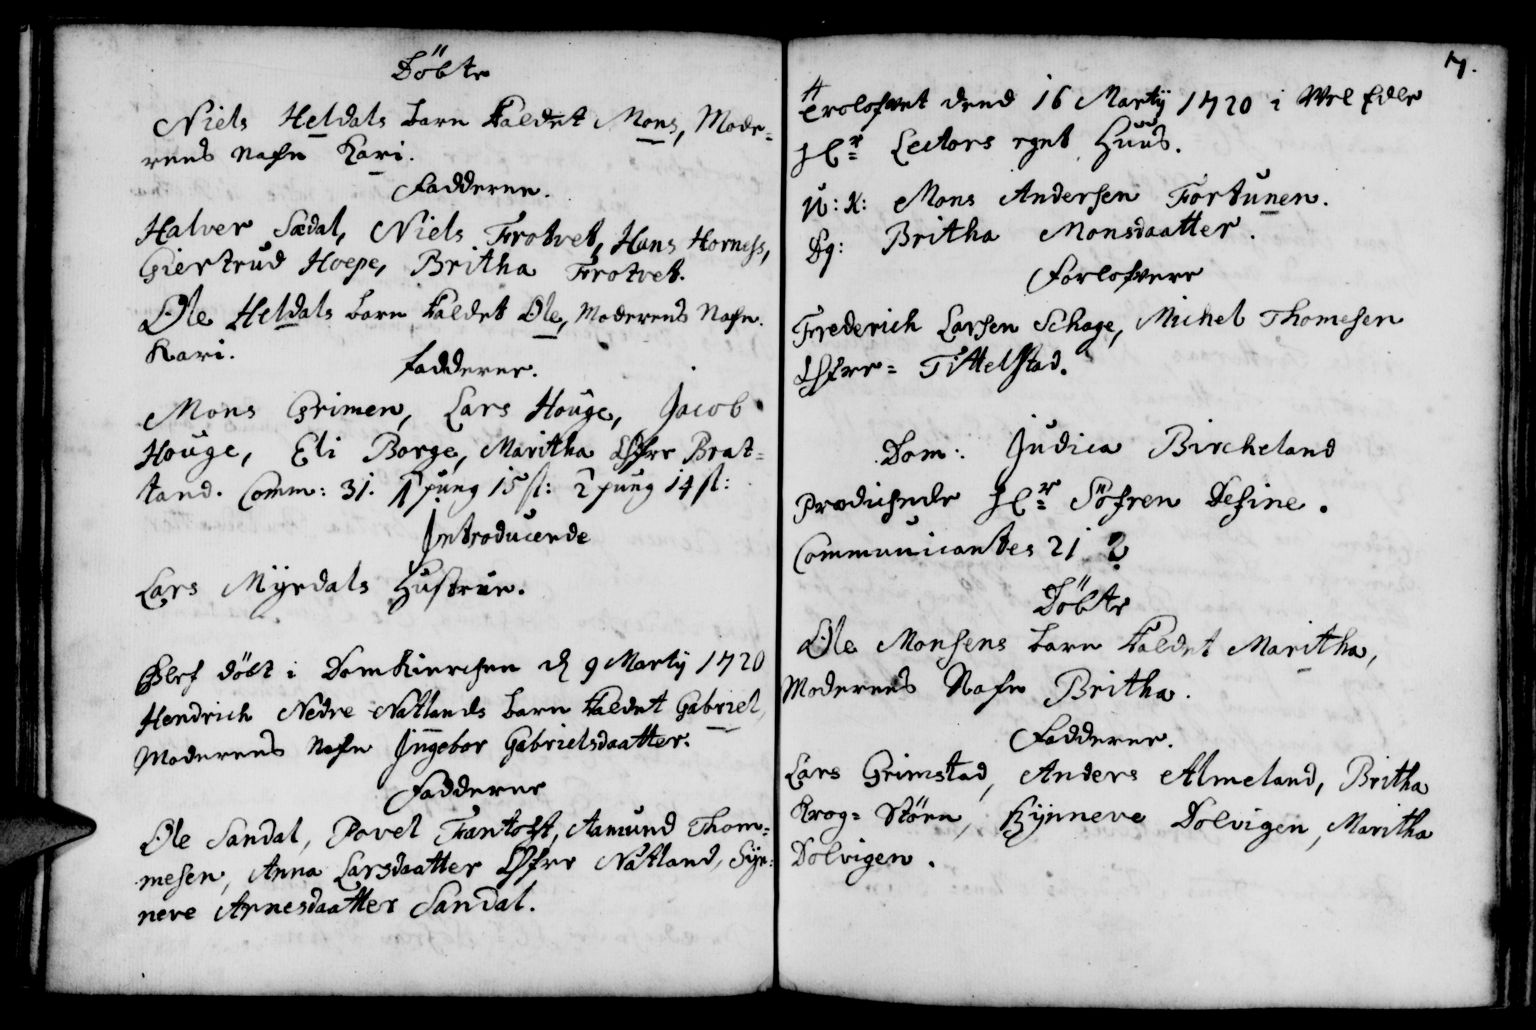 Döbte
Niels Heldals barn kaldet Mons, Mode-
rens Nafn Kari.
Fadderne.
Halver Sædal, Niels Frotvet, Hans Horness,
Giertrud Hoepe, Britha Frotvet.
Ole Heldals barn kaldet Ole, Moderens Nafn
Kari.
Fadderne.
Mons Grimen, Lars Houge, Jacob
Houge, Eli Borge, Maritha Øfre Brat-
land. Comm: 31. 1 pung 15 sl: 2 pung 14 sl:
Introducerede
Lars Myrdals Hustrue.
Blef döbt i Domkirchen d 9 Marty 1720
Hendrich Nedre Natlands barn kaldet Gabriel,
Moderens Nafn Ingebor Gabrielsdaatter.
Fadderne
Ole Sandal, Povel Fantoft, Aamund Thom-
mesen, Anna Larsdaatter Øfre Natland, Sÿn-
neve Arnesdaatter Sandal.
7.
Trolofvet dend 16 Marty 1720 i Vel Edle
Hr Lectors eget Huus.
U: K: Mons Andersen Fortunen.
Pg: Britha Monsdaatter.
Forlofvere
Frederich Larsen Schage, Michel Thomesen
Øfre- Tittelstad.
Dom: Judica Bircheland
Prædichede Hr Söfren Define.
Communicantes 21
Döbte
Ole Monsens barn kaldet Maritha,
Moderens Nafn Britha.
Fadderne.
Lars Grimstad, Anders Almeland, Britha
Krog- Störn, Kynneve Dolvigen, Maritha
Dolvigen.